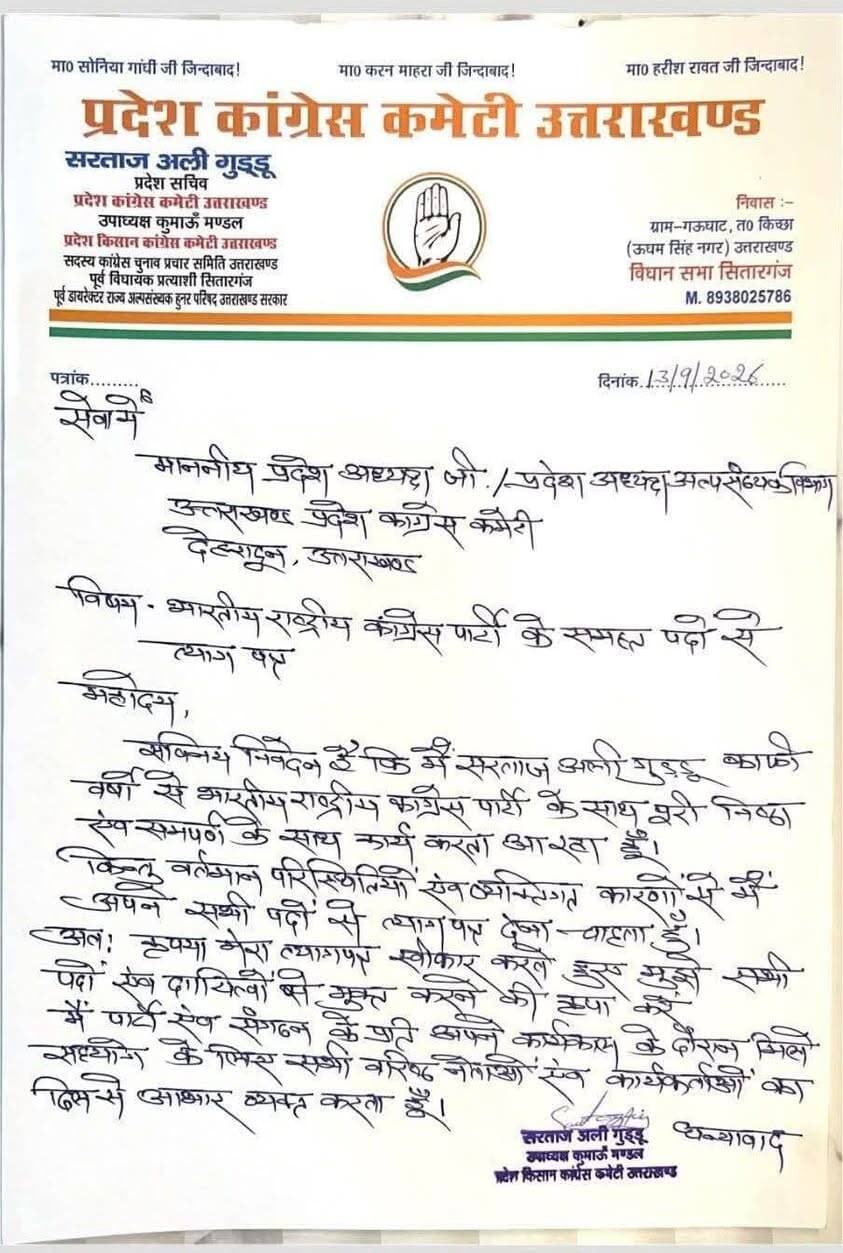 मा0 सोनिया गांधी जी जिन्दाबाद! मा0 करन माहरा जी जिन्दाबाद! मा0 हरीश रावत जी जिन्दाबाद!
प्रदेश कांग्रेस कमेटी उत्तराखण्ड
सरताज अली गुड्डू
प्रदेश सचिव
प्रदेश कांग्रेस कमेटी उत्तराखण्ड
उपाध्यक्ष कुमाऊँ मण्डल
प्रदेश किसान कांग्रेस कमेटी उत्तराखण्ड
सदस्य कांग्रेस चुनाव प्रचार समिति उत्तराखण्ड
पूर्व विधायक प्रत्याशी सितारगंज
पूर्व डायरेक्टर राज्य अल्पसंख्यक हुनर परिषद उत्तराखण्ड सरकार
निवास :-
ग्राम-गऊघाट, त0 किच्छा
(ऊधम सिंह नगर) उत्तराखण्ड
विधान सभा सितारगंज
M. 8938025786
पत्रांक......... दिनांक.13/9/2026......
सेवा में
माननीय प्रदेश अध्यक्ष जी./प्रदेश अध्यक्ष अल्पसंख्यक विभाग
उत्तराखण्ड प्रदेश कांग्रेस कमेटी
देहरादून, उत्तराखण्ड
विषय - भारतीय राष्ट्रीय कांग्रेस पार्टी के समस्त पदों से
त्याग पत्र
महोदय,
सविनय निवेदन है कि मैं सरताज अली गुड्डू काफी
वर्षों से भारतीय राष्ट्रीय कांग्रेस पार्टी के साथ पूरी निष्ठा
एंव समर्पण के साथ कार्य करता आ रहा हूँ।
किन्तु वर्तमान परिस्थितियों एंव व्यक्तिगत कारणों से मैं
अपने सभी पदों से त्यागपत्र देना चाहता हूँ।
अतः कृपया मेरा त्यागपत्र स्वीकार करते हुए मुझे सभी
पदों एंव दायित्वों से मुक्त करने की कृपा करें
मैं पार्टी एंव संगठन के प्रति अपने कार्यकाल के दौरान मिले
सहयोग के लिए सभी वरिष्ठ नेताओं एंव कार्यकर्ताओं का
दिल से आभार व्यक्त करता हूँ।
धन्यवाद
सरताज अली गुड्डू
उपाध्यक्ष कुमाऊँ मण्डल
प्रदेश किसान कांग्रेस कमेटी उत्तराखण्ड